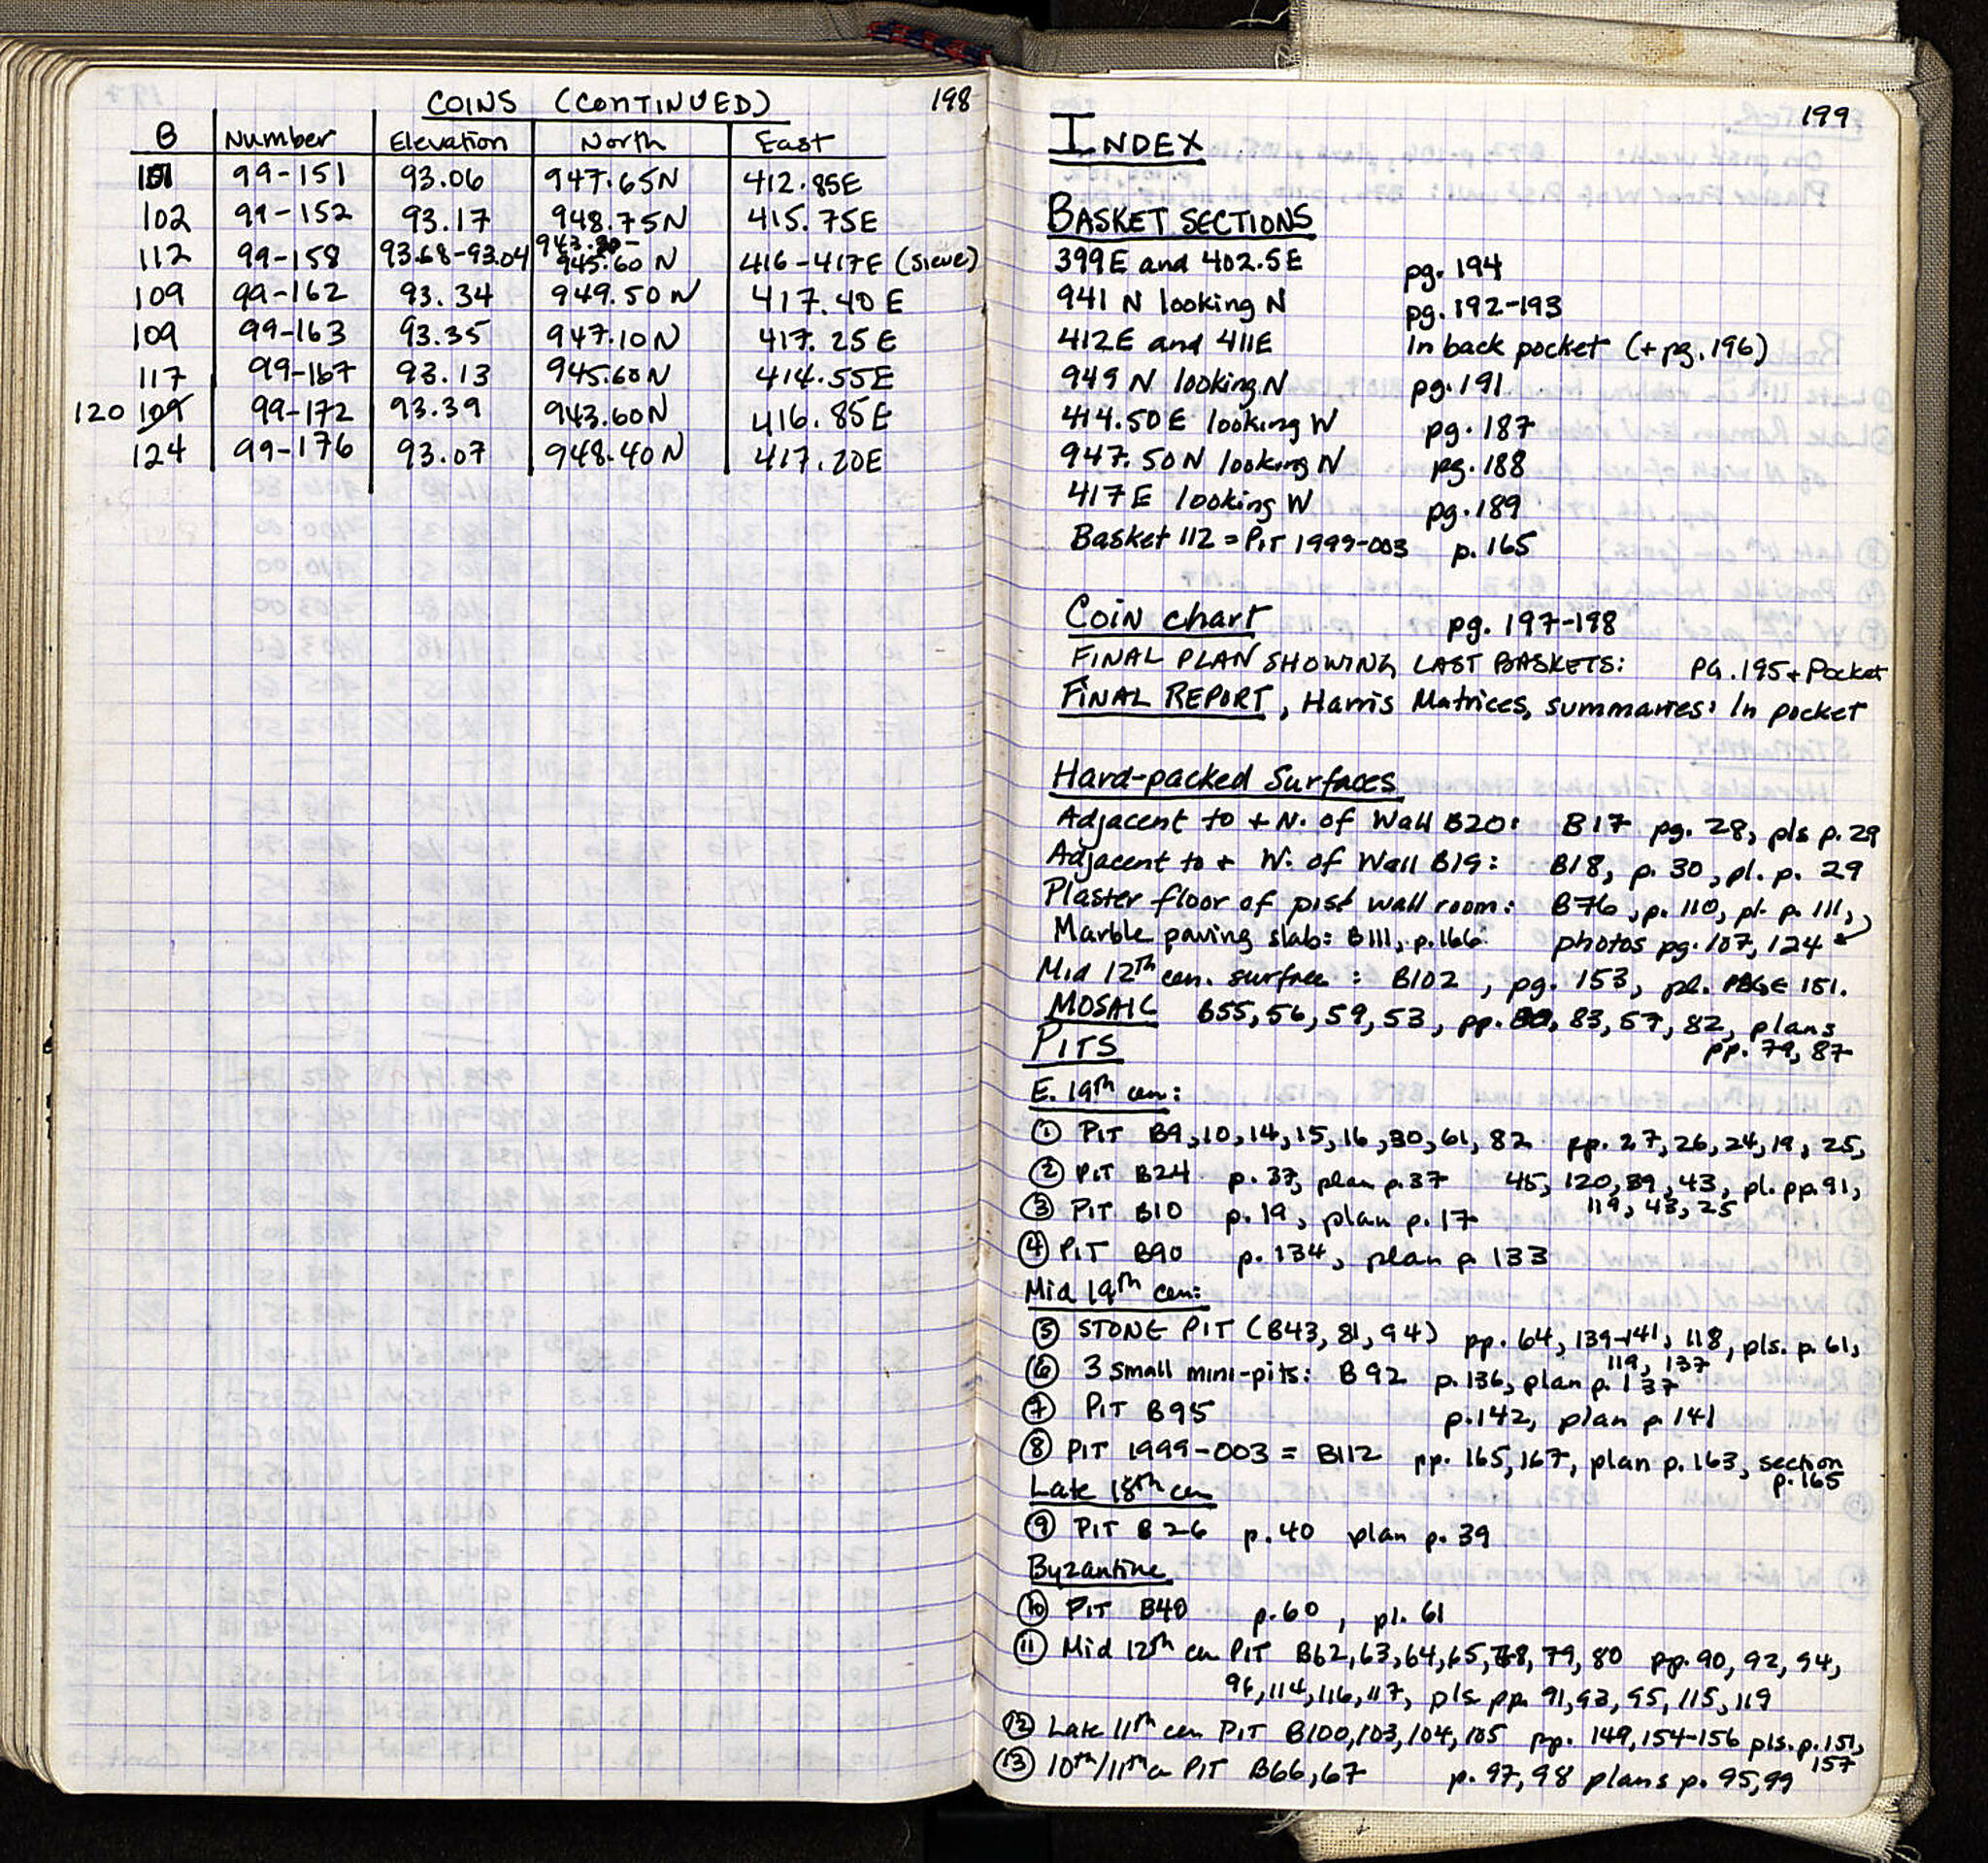 COINS (CONTINUED) 198
B Number Elevation North East
101 99-151 93.06 947.65N 412.85E
102 99-152 93.17 948.75N 415.75E
112 99-158 93.68-93.04 943.80-945.60 N 416-417E (sieve)
109 99-162 93.34 949.50N 417.40 E
109 99-163 93.35 947.10N 417.25E
117 99-167 93.13 945.60N 414.55E
120 109 99-172 93.39 943.60N 416.85E
124 99-176 93.07 948.40N 417.20E
199
INDEX
BASKET SECTIONS
399E and 402.5E pg. 194
941 N looking N pg. 192-193
412E and 411E In back pocket (+ pg. 196)
949 N looking N pg. 191
414.50E looking W pg. 187
947.50N looking N pg. 188
417E looking W pg. 189
Basket 112 = PIT 1999-003 p. 165
Coin chart pg. 197-198
FINAL PLAN SHOWING LAST BASKETS: PG. 195 + Pocket
FINAL REPORT, Harris Matrices, summaries: In pocket
Hard-packed Surfaces
Adjacent to + N. of Wall B20: B17 pg. 28, pls p. 29
Adjacent to + W. of Wall B19: B18, p. 30, pl. p. 29
Plaster floor of pisé wall room: B76, p. 110, pl. p. 111,
Marble paving slab: B111, p. 166 photos pg. 107, 124
Mid 12th cen. surface: B102, pg. 153, pl. PAGE 151.
MOSAIC B55, 56, 59, 53, pp. 80, 83, 57, 82, plans
pp. 79, 87
PITS
E. 19th cen:
① PIT B9, 10, 14, 15, 16, 30, 61, 82 pp. 27, 26, 24, 19, 25,
② PIT B24 p. 37, plan p. 37 45, 120, 89, 43, pl. pp. 91,
119, 43, 25
③ PIT B10 p. 19, plan p. 17
④ PIT B90 p. 134, plan p 133
Mid 19th cen:
⑤ STONE PIT (B43, 81, 94) pp. 64, 139-141, 118, pls. p. 61,
119, 137
⑥ 3 small mini-pits: B 92 p. 136, plan p. 137
⑦ PIT B95 p. 142, plan p 141
⑧ PIT 1999-003 = B112 pp. 165, 167, plan p. 163, section
p. 165
Late 18th cen
⑨ PIT B 26 p. 40 plan p. 39
Byzantine
⑩ PIT B40 p. 60, pl. 61
⑪ Mid 12th cen PIT B62, 63, 64, 65, 78, 79, 80 pp. 90, 92, 94,
96, 114, 116, 117, pls pp. 91, 93, 95, 115, 119
⑫ Late 11th cen PIT B100, 103, 104, 105 pp. 149, 154-156 pls. p. 151,
157
⑬ 10th/11th c PIT B66, 67 p. 97, 98 plans p. 95, 99